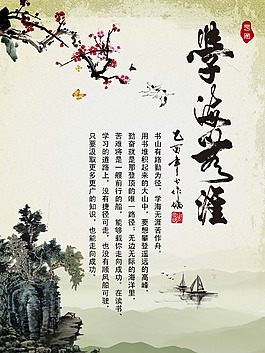 學海無涯
书山有路勤为径，学海无涯苦作舟。
用书堆积起来的大山中，要想攀登遥远的高峰，
勤奋就是那登顶的唯一路径；无边无际的海洋里，
苦难将是一艘前行的船，能够载你走向成功。在读书、
学习的道路上，没有捷径可走，也没有顺风船可驶，
只要汲取更多更广的知识，也能走向成功。